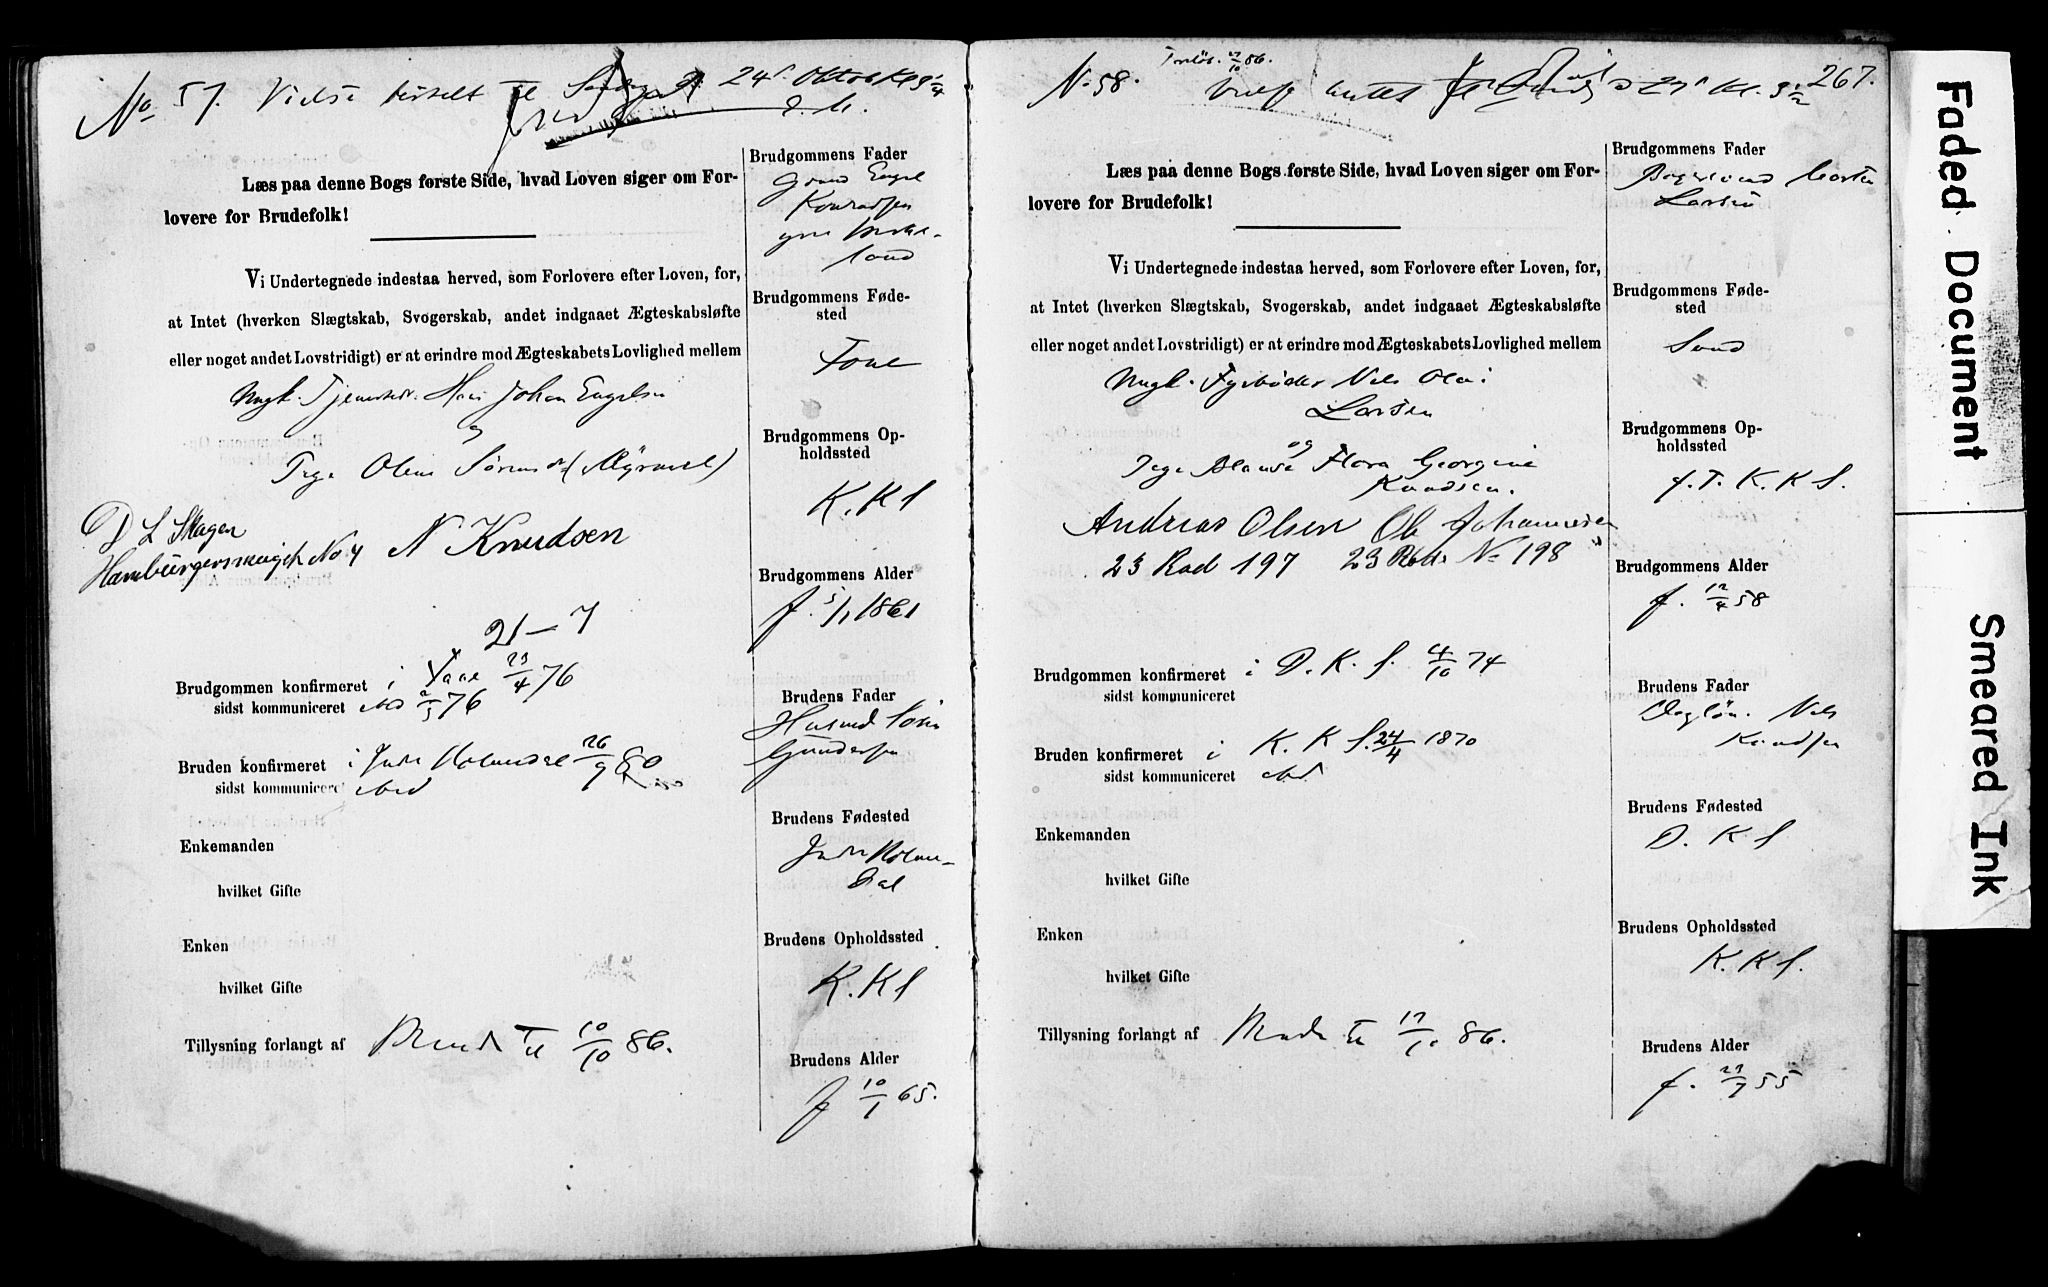 No 57. Vielse bestilt til 24de Oktob Kl 5 1/4
e. M.
Læs paa denne Bogs første Side, hvad Loven siger om For-
lovere for Brudefolk!
Vi Undertegnede indestaa herved, som Forlovere efter Loven, for,
at Intet (hverken Slægtskab, Svogerskab, andet indgaaet Ægteskabsløfte
eller noget andet Lovstridigt) er at erindre mod Ægteskabets Lovlighed mellem
Ungk. Hans Johan Engelsen
og
Pige Oline (Myrvold)
D L Skagen
Hamburgersmuget No 4 N Knudsen
21 — 7
Brudgommen konfirmeret i 23/4 76
sidst kommuniceret ibid 76
Bruden konfirmeret i Indre Holmedal 26/9 80
sidst kommuniceret ibid
Enkemanden
hvilket Gifte
Enken
hvilket Gifte
Tillysning forlangt af Brud til 10/10 86.
Brudgommens Fader
Gmd Engel
Konradsen
Brudgommens Føde-
sted
Brudgommens Op-
holdssted
K. K S
Brudgommens Alder
f. 5/1 1861
Brudens Fader
Husmd
Gundersen
Brudens Fødested
Indre Holme-
dal
Brudens Opholdssted
K. K S
Brudens Alder
f 10/1 65.
No 58. /10 86. 267.
Læs paa denne Bogs første Side, hvad Loven siger om For-
lovere for Brudefolk!
Vi Undertegnede indestaa herved, som Forlovere efter Loven, for,
at Intet (hverken Slægtskab, Svogerskab, andet indgaaet Ægteskabsløfte
eller noget andet Lovstridigt) er at erindre mod Ægteskabets Lovlighed mellem
Ungk. Fyrbøder Nils Olai
Larsen
og
Pige Flora Georgine
Knudsen.
Andreas Olsen Ob Johannesen
23 Rod 197 23 Rode No 198
Brudgommen konfirmeret i D. K. S. 4/10 74
sidst kommuniceret
Bruden konfirmeret i K. K S. 24/4 1870
sidst kommuniceret ibid
Enkemanden
hvilket Gifte
Enken
hvilket Gifte
Tillysning forlangt af Brud til 86.
Brudgommens Fader
Larsen
Brudgommens Føde-
sted
Sund
Brudgommens Op-
holdssted
f. T. K. K S.
Brudgommens Alder
f. 12/4 58
Brudens Fader
Dagløn. Nils
Knudsen
Brudens Fødested
D. K S
Brudens Opholdssted
K. K S.
Brudens Alder
f. 55
Faded Document
Smeared Ink